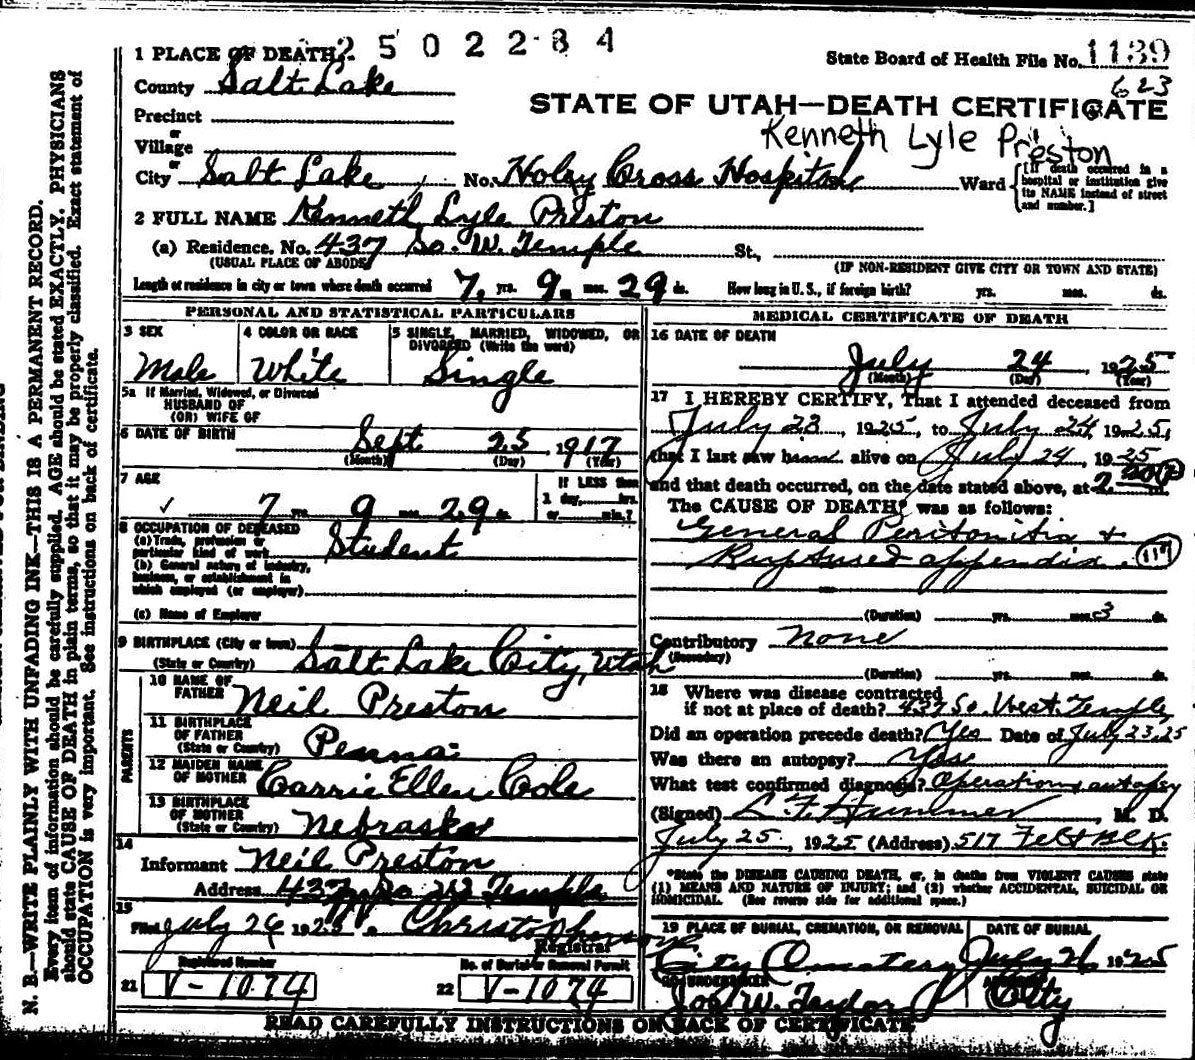 2502284
1 PLACE OF DEATH
State Board of Health File No. 1139
County Salt Lake
623
STATE OF UTAH—DEATH CERTIFICATE
Precinct
or
Kenneth Lyle Preston
Village
or
City Salt Lake No. Holy Cross Hospital Ward
[If death occurred in a hospital or institution give its NAME instead of street and number.]
2 FULL NAME Kenneth Lyle Preston
(a) Residence, No. 437 So. W. Temple St.,
(USUAL PLACE OF ABODE)
(IF NON-RESIDENT GIVE CITY OR TOWN AND STATE)
Length of residence in city or town where death occurred 7 yrs. 9 mos. 29 ds. How long in U. S., if foreign birth? yrs. mos. ds.
PERSONAL AND STATISTICAL PARTICULARS
3 SEX
Male
4 COLOR OR RACE
White
5 SINGLE, MARRIED, WIDOWED, OR
DIVORCED (Write the word)
Single
5a If Married, Widowed, or Divorced
HUSBAND OF
(OR) WIFE OF
6 DATE OF BIRTH
Sept 25, 1917
(Month) (Day) (Year)
7 AGE
7 yrs. 9 mos. 29 ds.
If LESS than
1 day, hrs.
or min.?
8 OCCUPATION OF DECEASED
(a) Trade, profession or
particular kind of work Student
(b) General nature of industry,
business, or establishment in
which employed (or employer)
(c) Name of Employer
9 BIRTHPLACE (City or town)
(State or Country) Salt Lake City, Utah
PARENTS
10 NAME OF
FATHER Neil Preston
11 BIRTHPLACE
OF FATHER
(State or Country) Penna.
12 MAIDEN NAME
OF MOTHER Carrie Ellen Cole
13 BIRTHPLACE
OF MOTHER
(State or Country) Nebraska
14
Informant Neil Preston
Address 437 So W Temple
15
Filed July 26 1925 Christopherson
Registrar
Registered Number
21 V-1074
No. of Burial or Removal Permit
22 V-1074
MEDICAL CERTIFICATE OF DEATH
16 DATE OF DEATH
July 24, 1925
(Month) (Day) (Year)
17 I HEREBY CERTIFY, That I attended deceased from
July 23, 1925, to July 24, 1925,
that I last saw h alive on July 24, 1925
and that death occurred, on the date stated above, at 2 P m.
The CAUSE OF DEATH* was as follows:
General Peritonitis +
Ruptured appendix. 117
(Duration) yrs. mos. 3 ds.
Contributory None
(Secondary)
(Duration) yrs. mos. ds.
18 Where was disease contracted
if not at place of death? 437 So. West Temple
Did an operation precede death? Yes Date of July 23, 25
Was there an autopsy? Yes
What test confirmed diagnosis? Operation, autopsy
(Signed) L F Hummer, M. D.
July 25, 1925 (Address) 517 Felt Blk.
*State the DISEASE CAUSING DEATH, or, in deaths from VIOLENT CAUSES state
(1) MEANS AND NATURE OF INJURY; and (2) whether ACCIDENTAL, SUICIDAL OR
HOMICIDAL. (See reverse side for additional space.)
19 PLACE OF BURIAL, CREMATION, OR REMOVAL
City Cemetery
DATE OF BURIAL
July 26 1925
20 UNDERTAKER
Jos W. Taylor
City
READ CAREFULLY INSTRUCTIONS ON BACK OF CERTIFICATE
N. B.—WRITE PLAINLY WITH UNFADING INK—THIS IS A PERMANENT RECORD.
Every item of information should be carefully supplied. AGE should be stated EXACTLY. PHYSICIANS
should state CAUSE OF DEATH in plain terms, so that it may be properly classified. Exact statement of
OCCUPATION is very important. See instructions on back of certificate.